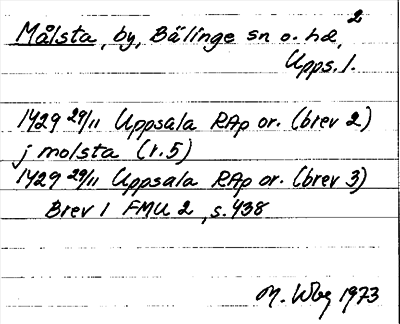 2
Målsta, by, Bälinge sn o. hd,
Upps. l.
1429 29/11 Uppsala RAp or. (brev 2)
j molsta (r. 5)
1429 29/11 Uppsala RAp or. (brev 3)
Brev 1 FMU 2, s. 438
M. Wbg 1973